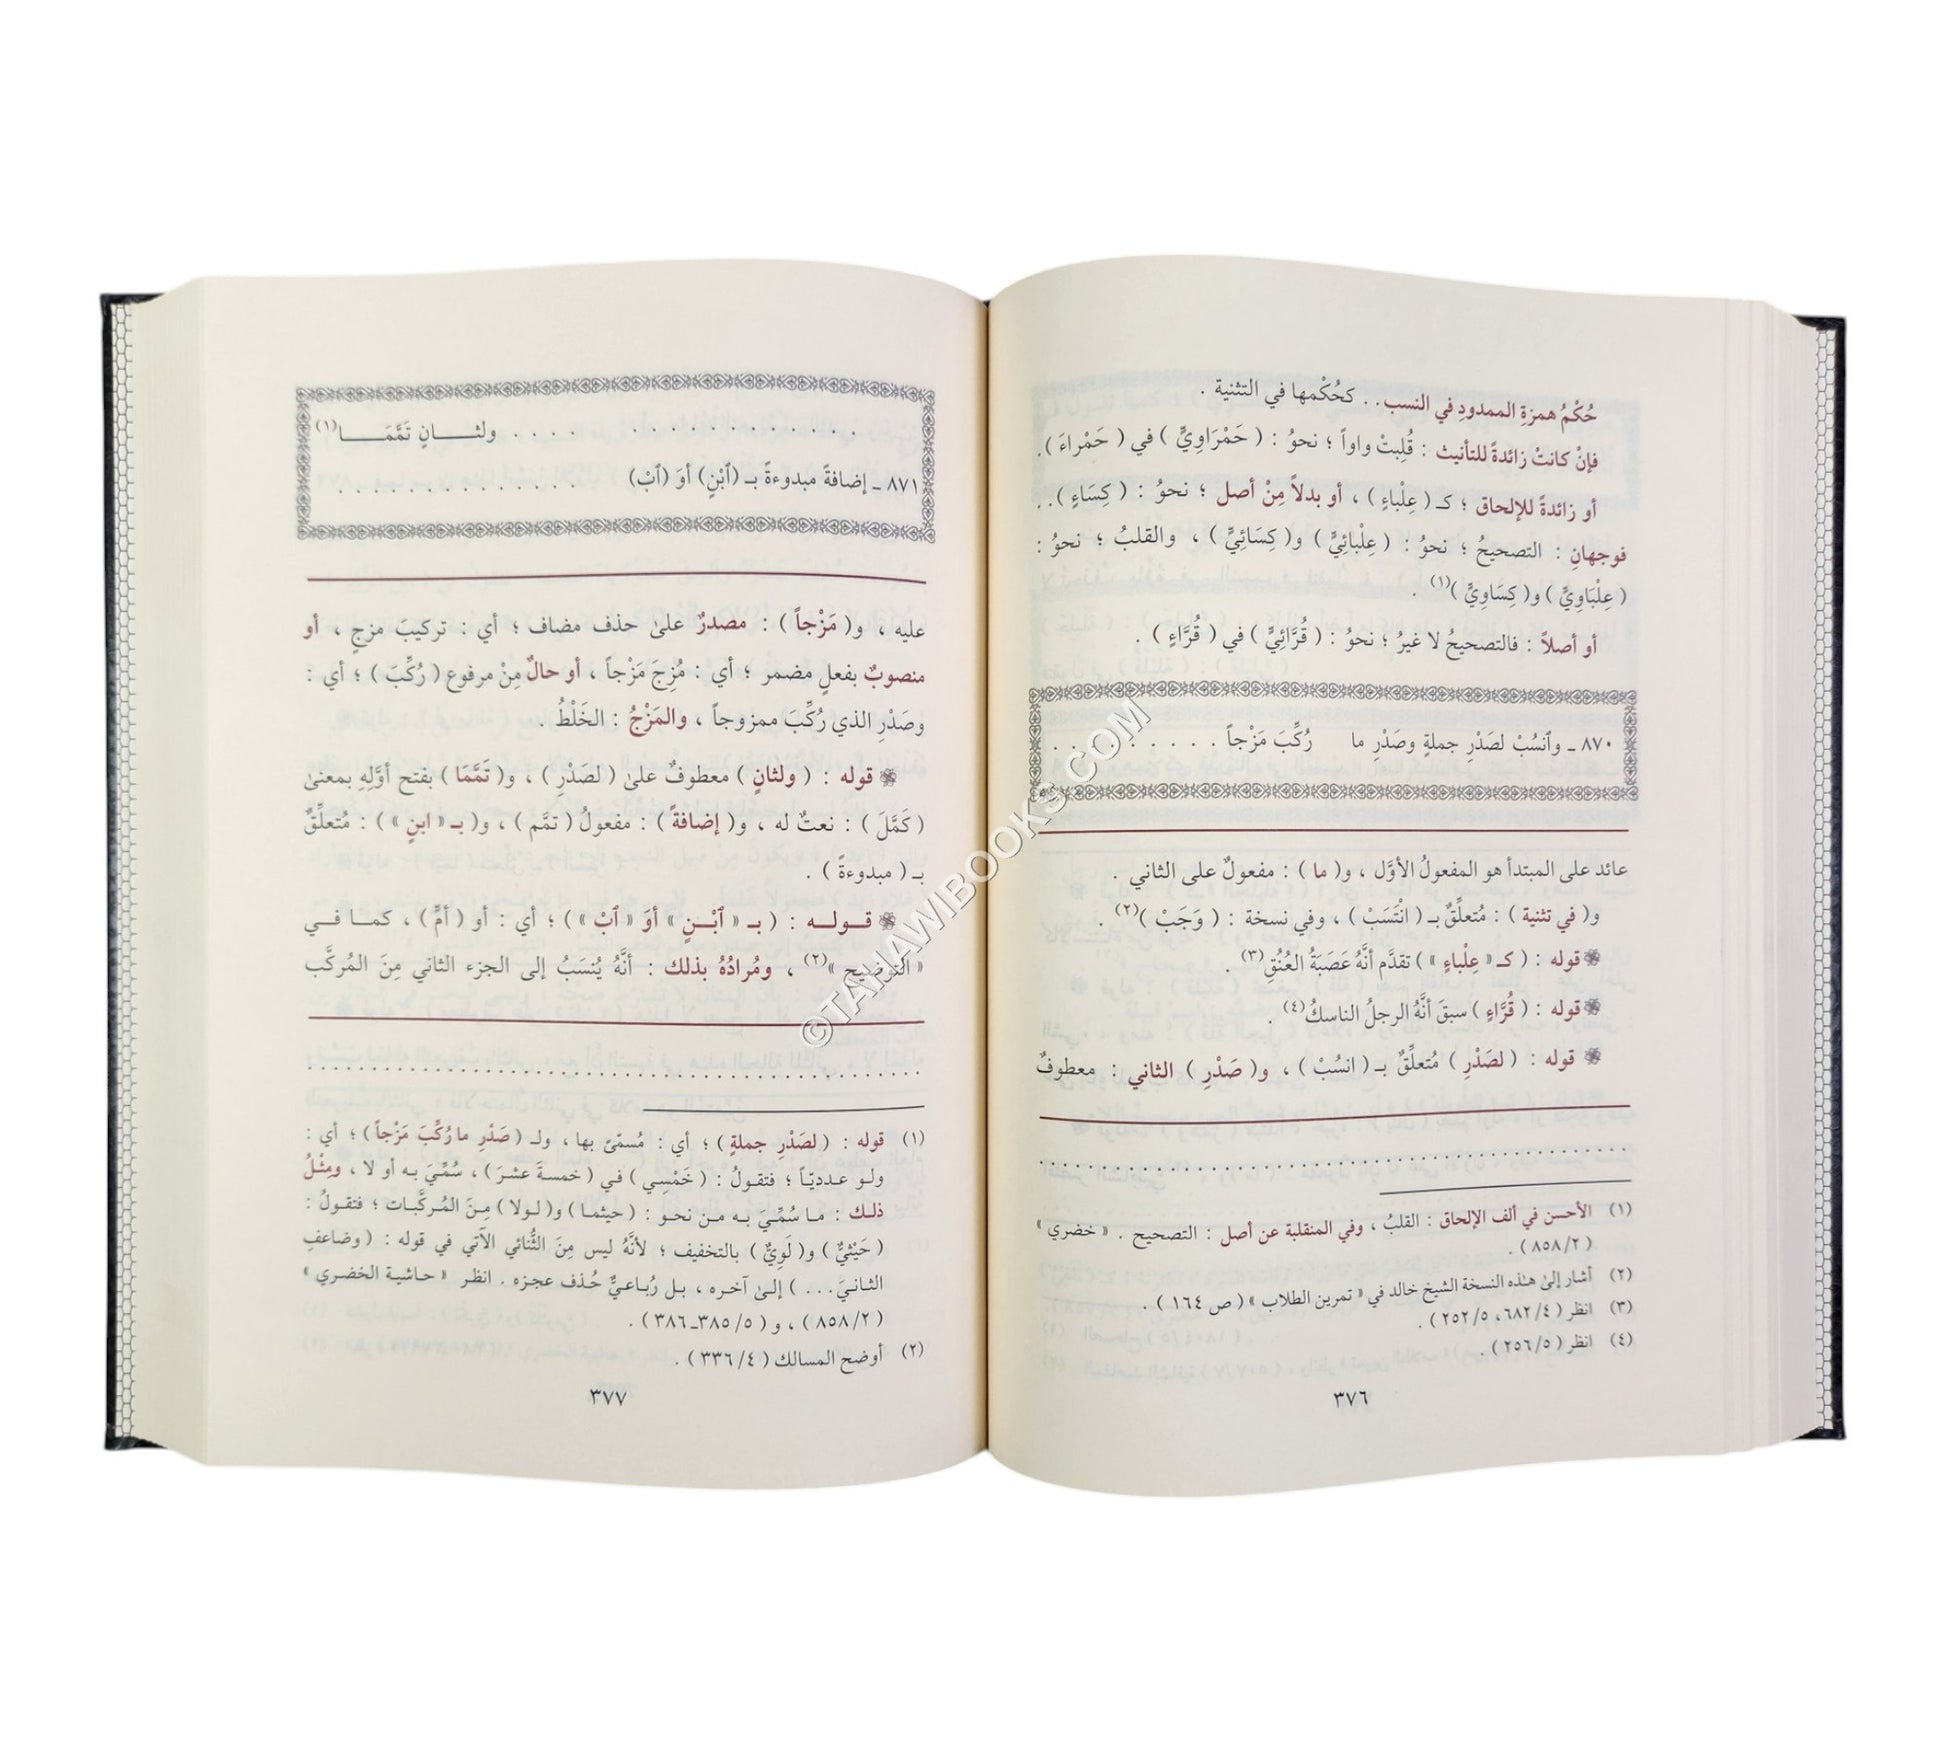 حُكْمُ همزةِ الممدودِ في النسب.. كحُكْمها في التثنية .
فإنْ كانتْ زائدةً للتأنيث : قُلِبتْ واواً ؛ نحوُ : ( حَمْرَاوِيٍّ ) في ( حَمْراءَ ) .
أو زائدةً للإلحاق ؛ كـ ( عِلْباءٍ ) ، أو بدلاً مِنْ أصل ؛ نحوُ : ( كِسَاءٍ ) ..
فوجهانِ : التصحيحُ ؛ نحوُ : ( عِلْبائِيٍّ ) و( كِسَائِيٍّ ) ، والقلبُ ؛ نحوُ :
( عِلْبَاوِيٍّ ) و( كِسَاوِيٍّ )(١) .
أو أصلاً : فالتصحيحُ لا غيرُ ؛ نحوُ : ( قُرَّائِيٍّ ) في ( قُرَّاءٍ ) .
٨٧٠ ـ وٱنسُبْ لصَدْرِ جملةٍ وصَدْرِ ما رُكِّبَ مَزْجاً . . . . . . . . .
عائد على المبتدأ هو المفعولُ الأوَّل ، و( ما ) : مفعولٌ على الثاني .
و( في تثنية ) : مُتعلِّقٌ بـ ( انْتَسَبْ ) ، وفي نسخة : ( وَجَبْ )(٢) .
قوله : ( كـ « عِلْباءٍ » ) تقدَّم أنَّهُ عَصَبَةُ العُنُقِ(٣) .
قوله : ( قُرَّاءٍ ) سبقَ أنَّهُ الرجلُ الناسكُ(٤) .
قوله : ( لصَدْرِ ) مُتعلِّقٌ بـ ( انسُبْ ) ، و( صَدْرِ ) الثاني : معطوفٌ
(١) الأحسن في ألف الإلحاق : القلبُ ، وفي المنقلبة عن أصل : التصحيح . « خضري »
( ٢/ ٨٥٨ ) .
(٢) أشار إلىٰ هٰذه النسخة الشيخ خالد في « تمرين الطلاب » ( ص ١٦٤ ) .
(٣) انظر ( ٤/ ٦٨٢ ، ٥/ ٢٥٢ ) .
(٤) انظر ( ٥/ ٢٥٦ ) .
٣٧٦
. . . . . . . . . . . . . . . . ولثـــانٍ تَمَّمَـــا(١)
٨٧١ ـ إضافةً مبدوءةً بـ (ٱبْنٍ) أوَ (ٱبْ) . . . . . . . . . . . . .
عليه ، و( مَزْجاً ) : مصدرٌ علىٰ حذف مضاف ؛ أي : تركيبَ مزجٍ ، أو
منصوبٌ بفعلٍ مضمر ؛ أي : مُزِجَ مَزْجاً ، أو حالٌ مِنْ مرفوع ( رُكِّبَ ) ؛ أي :
وصَدْرِ الذي رُكِّبَ ممزوجاً ، والمَزْجُ : الخَلْطُ .
قوله : ( ولثانٍ ) معطوفٌ علىٰ ( لصَدْرِ ) ، و( تَمَّمَا ) بفتح أوَّلِهِ بمعنىٰ
( كَمَّلَ ) : نعتٌ له ، و( إضافةً ) : مفعولُ ( تمَّم ) ، و( بـ « ابنٍ » ) : مُتعلِّقٌ
بـ ( مبدوءةً ) .
قـولـه : ( بـ « ٱبْـنٍ » أوَ « ٱبْ » ) ؛ أي : أو ( أمٍّ ) ، كمـا فـي
« التوضيح »(٢) ، ومُرادُهُ بذلك : أنَّهُ يُنسَبُ إلى الجزء الثاني مِنَ المُركَّب
(١) قوله : ( لصَدْرِ جملةٍ ) ؛ أي : مُسمّىً بها ، ولـ ( صَدْرِ ما رُكِّبَ مَزْجاً ) ؛ أي :
ولو عدديّاً ؛ فتقولُ : ( خَمْسِي ) في ( خمسةَ عشرَ ) ، سُمِّيَ به أو لا ، ومِثْلُ
ذلـك : مـا سُمِّـيَ بـه مـن نحـو : ( حيثما ) و( لـولا ) مِـنَ المُركَّبات ؛ فتقولُ :
( حَيْثِيٌّ ) و( لَوِيٌّ ) بالتخفيف ؛ لأنَّهُ ليس مِنَ الثُّنائي الآتي في قوله : ( وضاعفِ
الثانيَ... ) إلـىٰ آخـره ، بـل رُبـاعـيٌّ حُـذف عجـزه . انظـر « حـاشيـة الخضـري »
( ٢/ ٨٥٨ ) ، و ( ٥/ ٣٨٥ـ٣٨٦ ) .
(٢) أوضح المسالك ( ٤/ ٣٣٦ ) .
٣٧٧
©TAHAWIBOOKS.COM